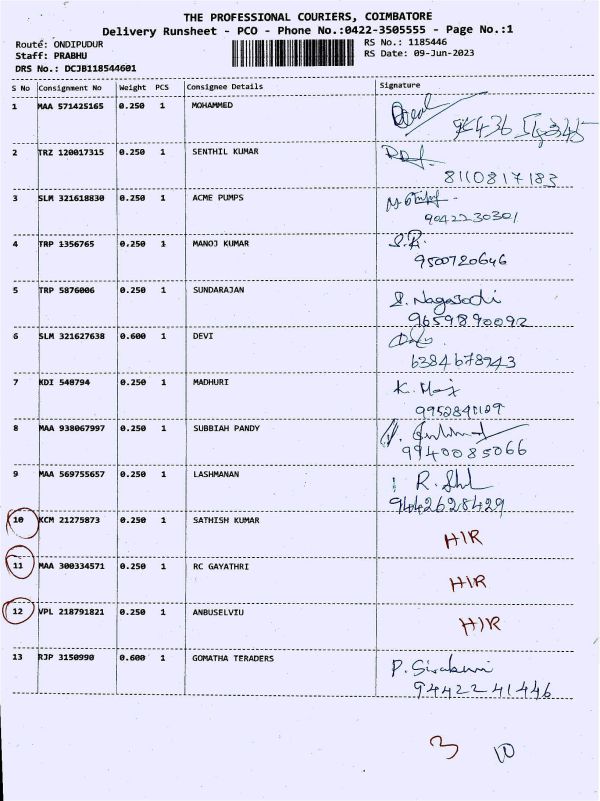 THE PROFESSIONAL COURIERS, COIMBATORE
Delivery Runsheet - PCO - Phone No.:0422-3505555 - Page No.:1
Route: ONDIPUDUR RS No.: 1185446
Staff: PRABHU RS Date: 09-Jun-2023
DRS No.: DCJB118544601
S No Consignment No Weight PCS Consignee Details Signature
1 MAA 571425165 0.250 1 MOHAMMED
2 TRZ 120017315 0.250 1 SENTHIL KUMAR
8110817183
3 SLM 321618830 0.250 1 ACME PUMPS
9042230301
4 TRP 1356765 0.250 1 MANOJ KUMAR S.R.
9500720646
5 TRP 5876006 0.250 1 SUNDARAJAN S. Nagajodi
9659890092
6 SLM 321627638 0.600 1 DEVI
6384678943
7 KDI 548794 0.250 1 MADHURI K.
8 MAA 938067997 0.250 1 SUBBIAH PANDY
9940085066
9 MAA 569755657 0.250 1 LASHMANAN R.
9442628429
10 KCM 21275873 0.250 1 SATHISH KUMAR HIR
11 MAA 300334571 0.250 1 RC GAYATHRI HIR
12 VPL 218791821 0.250 1 ANBUSELVIU HIR
13 RJP 3150990 0.600 1 GOMATHA TERADERS P. Sivakumi
9442241446
3 10